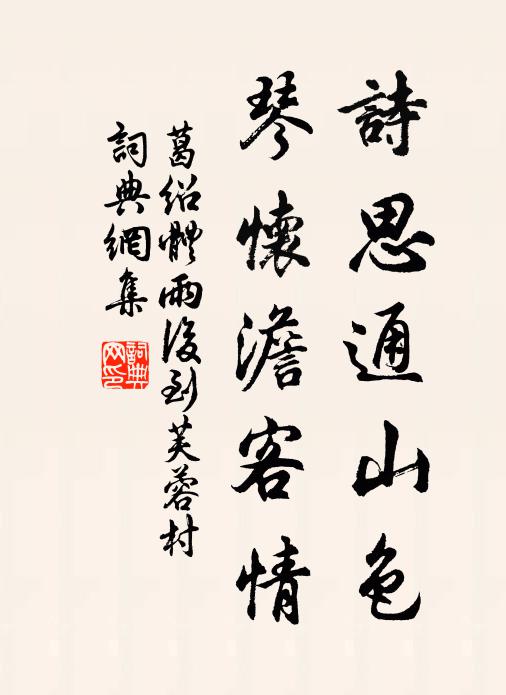 詩思通山色
琴懷澹客情
葛紹體雨後到芙蓉村
詞典網集
詞典网印